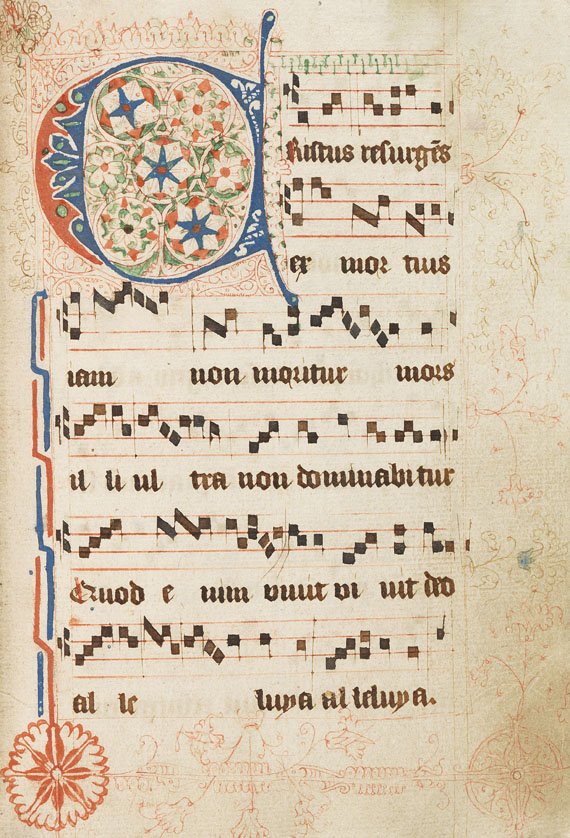 CRistus resurgēs
ex mor tuis
iam non moritur mors
il li ul tra non dominabitur
Quod e nim viuit vi uit deo
al le luya alleluya.